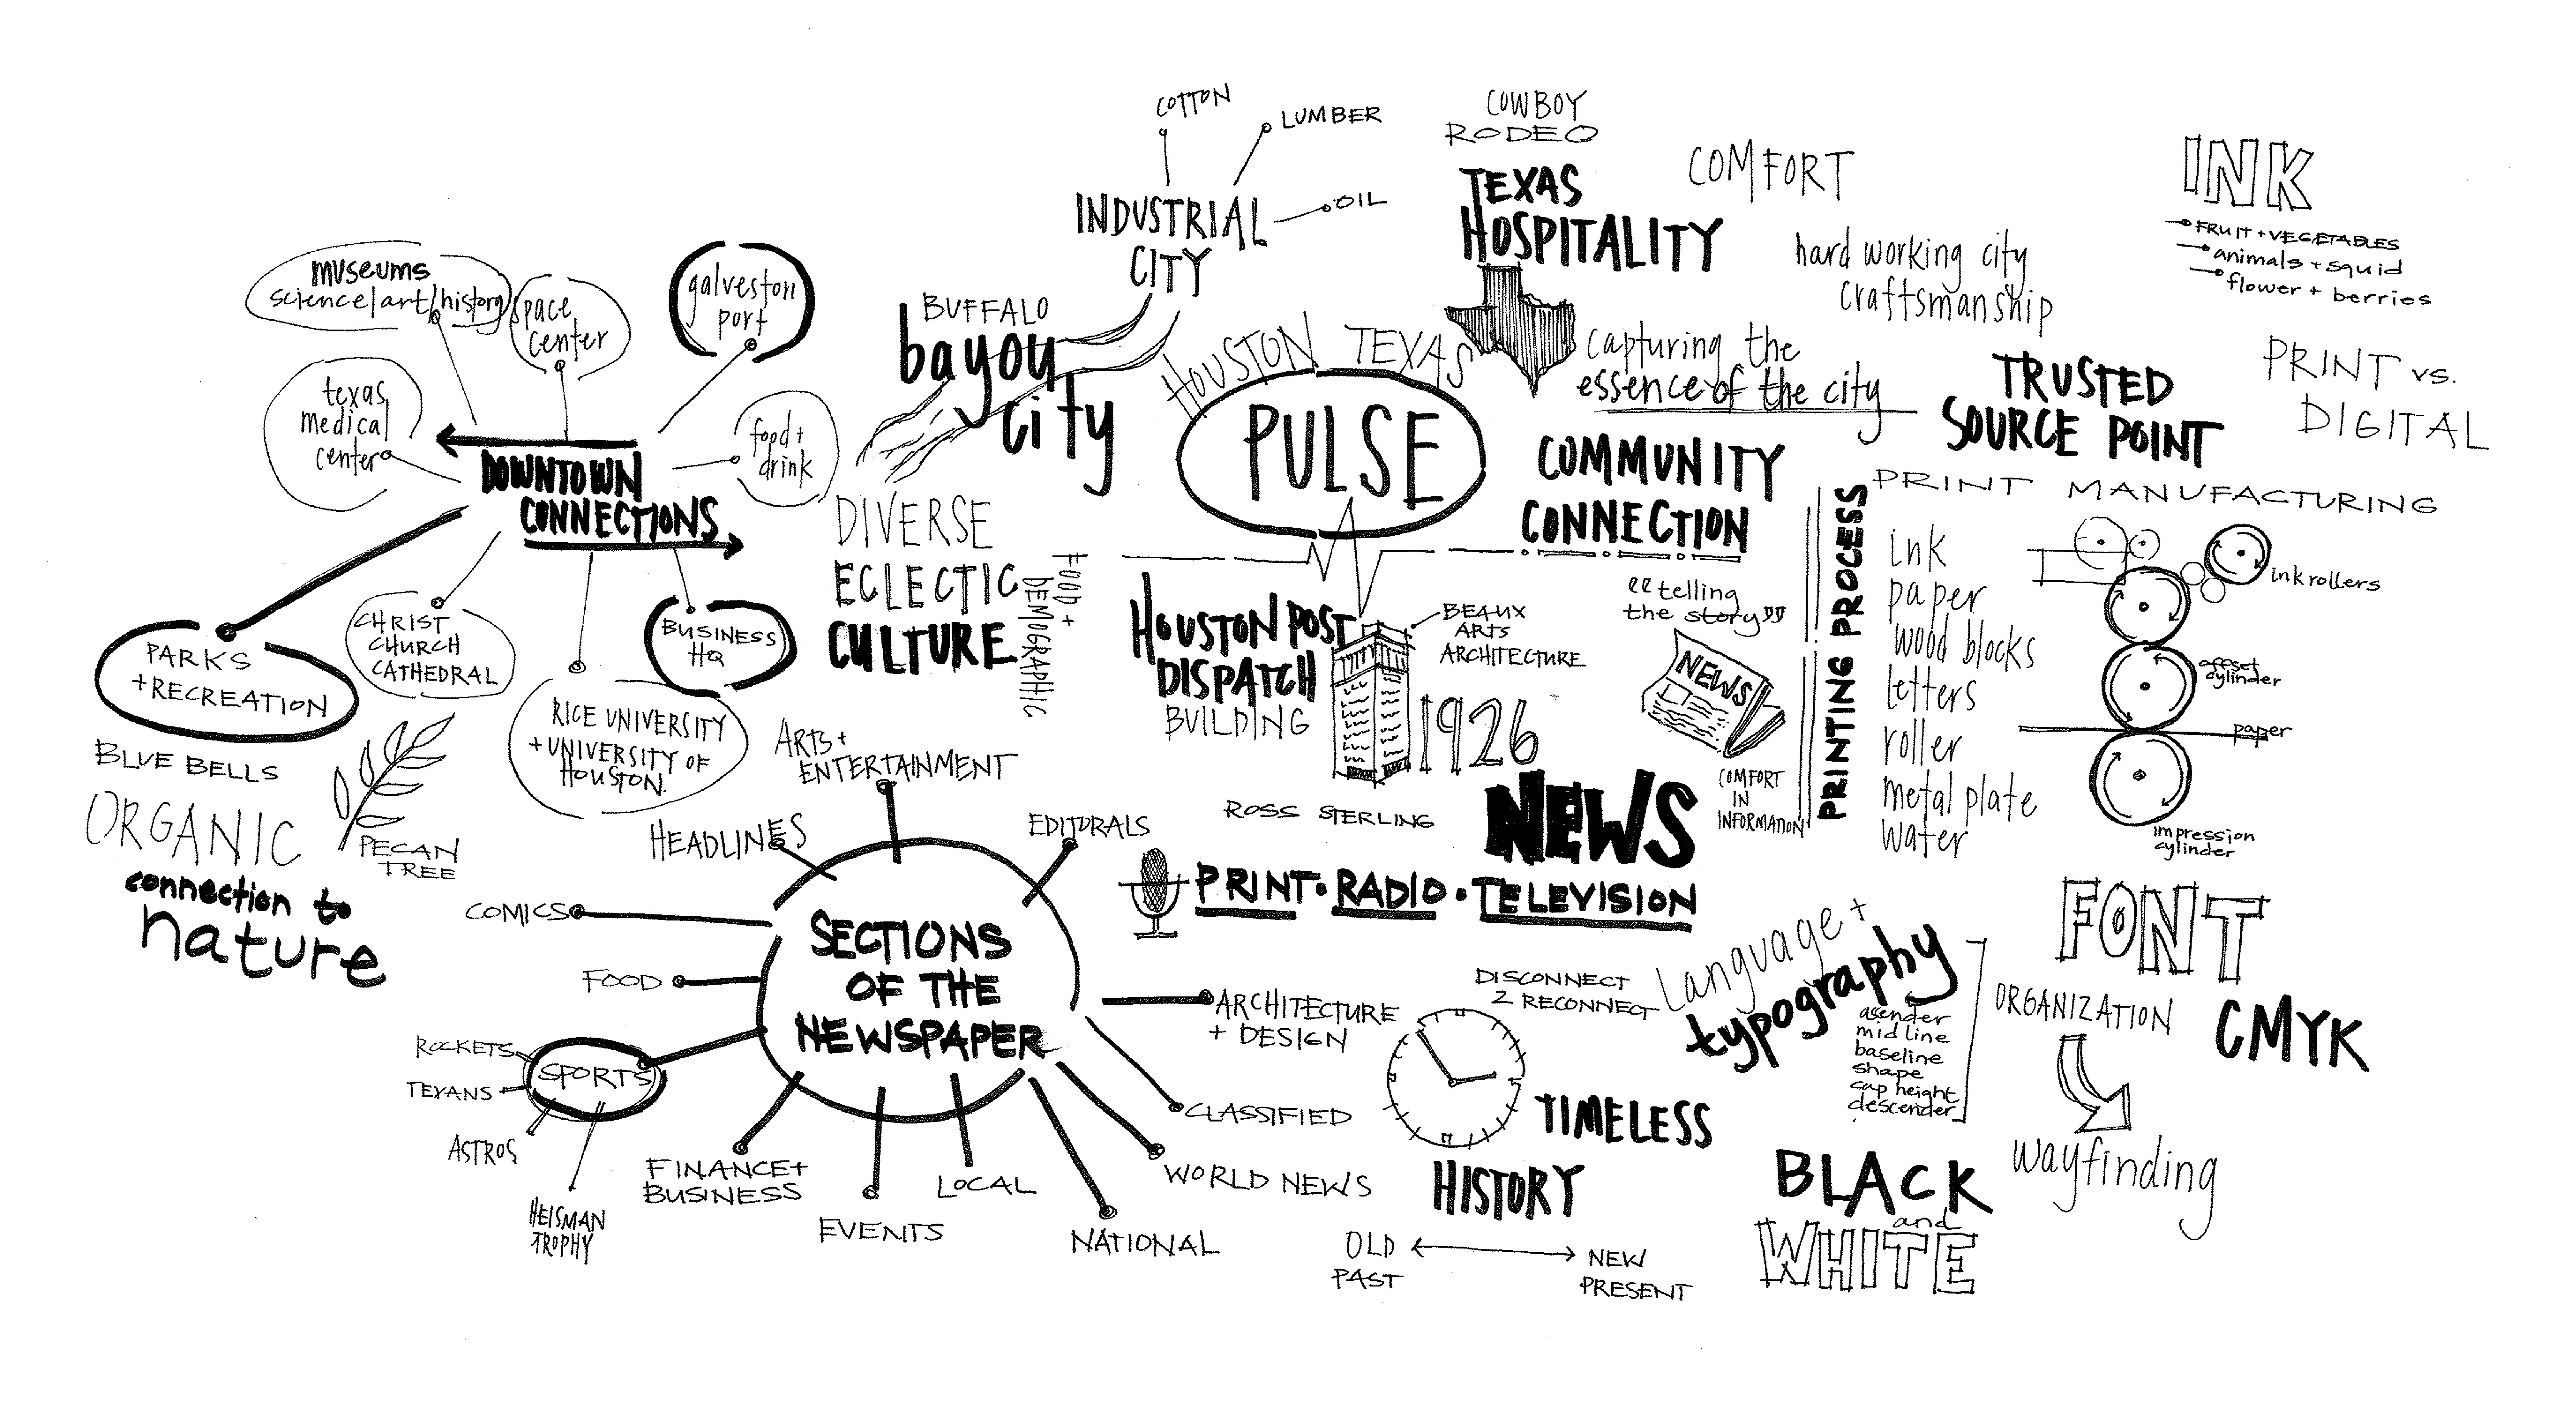 COTTON
LUMBER
OIL
INDUSTRIAL
CITY
COWBOY
RODEO
TEXAS
HOSPITALITY
COMFORT
hard working city
craftsmanship
INK
FRUIT + VEGETABLES
animals + squid
flower + berries
museums
science/art/history
space
center
galveston
port
texas
medical
center
food +
drink
DOWNTOWN
CONNECTIONS
PARKS
+ RECREATION
CHRIST
CHURCH
CATHEDRAL
RICE UNIVERSITY
+ UNIVERSITY OF
HOUSTON.
BUSINESS
HQ
BLUE BELLS
ORGANIC
PECAN
TREE
connection to
nature
BUFFALO
bayou
city
DIVERSE
ECLECTIC
CULTURE
FOOD +
DEMOGRAPHIC
HOUSTON TEXAS
PULSE
capturing the
essence of the city
COMMUNITY
CONNECTION
TRUSTED
SOURCE POINT
PRINT vs.
DIGITAL
HOUSTON POST
DISPATCH
BUILDING
BEAUX
ARTS
ARCHITECTURE
1926
ROSS STERLING
"telling
the story"
NEWS
COMFORT
IN
INFORMATION
NEWS
PRINT • RADIO • TELEVISION
PRINTING PROCESS
PRINT MANUFACTURING
ink
paper
wood blocks
letters
roller
metal plate
water
ink rollers
offset
cylinder
paper
impression
cylinder
SECTIONS
OF THE
NEWSPAPER
ARTS +
ENTERTAINMENT
HEADLINES
EDITORALS
COMICS
FOOD
SPORTS
ROCKETS
TEXANS
ASTROS
HEISMAN
TROPHY
FINANCE +
BUSINESS
EVENTS
LOCAL
NATIONAL
WORLD NEWS
CLASSIFIED
ARCHITECTURE
+ DESIGN
DISCONNECT
2 RECONNECT
TIMELESS
HISTORY
OLD
PAST
NEW
PRESENT
Language +
typography
asender
mid line
baseline
shape
cap height
descender
FONT
ORGANIZATION
CMYK
wayfinding
BLACK
and
WHITE